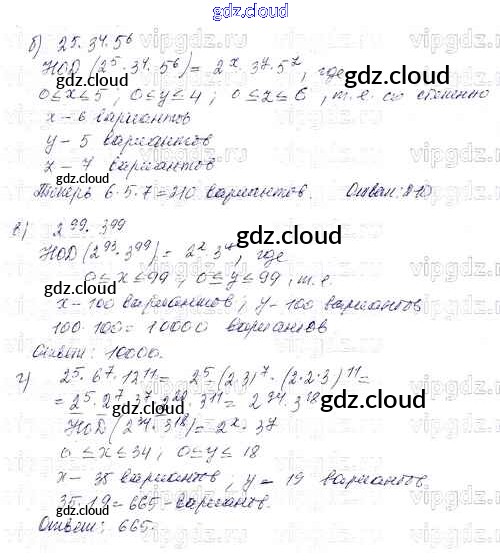 gdz.cloud
б) 2^5·3^4·5^6
НОД (2^5·3^4·5^6) = 2^x·3^y·5^z, где
0≤x≤5; 0≤y≤4; 0≤z≤6, т.е. со степенью
x – 6 вариантов
y – 5 вариантов
z – 7 вариантов
Теперь 6·5·7=210 вариантов. Ответ: 210
в) 2^99·3^99
НОД (2^93·3^99) = 2^x 3^y, где
0≤x≤99; 0≤y≤99, т.е.
x – 100 вариантов; y – 100 вариантов
100·100 = 10000 вариантов
Ответ: 10000.
г) 2^5·6^7·12^11 = 2^5(2·3)^7·(2·2·3)^11 =
= 2^5·2^7·3^7·2^22·3^11 = 2^34·3^18
НОД (2^34·3^18) = 2^x·3^y
0≤x≤34; 0≤y≤18
x – 35 вариантов, y – 19 вариантов.
35·19 = 665 – вариантов.
Ответ: 665.